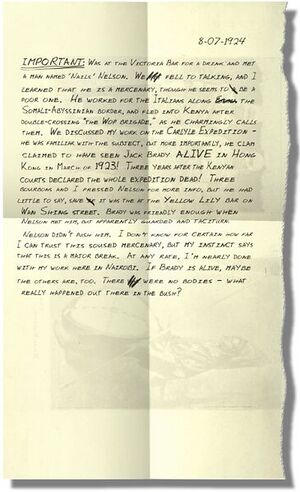 8-07-1924
IMPORTANT: Was at the Victoria Bar for a drink and met
a man named 'Nails' Nelson. We fell to talking, and I
learned that he is a mercenary, though he seems to be a
poor one. He worked for the Italians along the
Somali-Abyssinian border, and fled into Kenya after
double-crossing "the Wop brigade," as he charmingly calls
them. We discussed my work on the Carlyle Expedition -
he was familiar with the subject, but more importantly, he
claimed to have seen Jack Brady ALIVE in Hong
Kong in March of 1923! Three years after the Kenyan
courts declared the whole expedition dead! Three
bourbons and I pressed Nelson for more info, but he had
little to say, save it was at the Yellow Lily Bar on
Wan Shing street. Brady was friendly enough when
Nelson met him, but apparently guarded and taciturn.
Nelson didn't push him. I don't know for certain how far
I can trust this soused mercenary, but my instinct says
that this is a major break. At any rate, I'm nearly done
with my work here in Nairobi. If Brady is alive, maybe
the others are, too. There were no bodies - what
really happened out there in the bush?